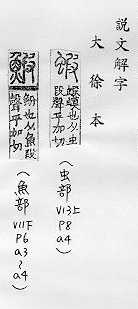 說文解字
大徐本
蝦
蝦蟆也从虫
叚聲乎加切
（虫部）
V13上
P8
a4
鰕
魵也从魚叚
聲乎加切
（魚部）
V11下
P6
a3
~
a4